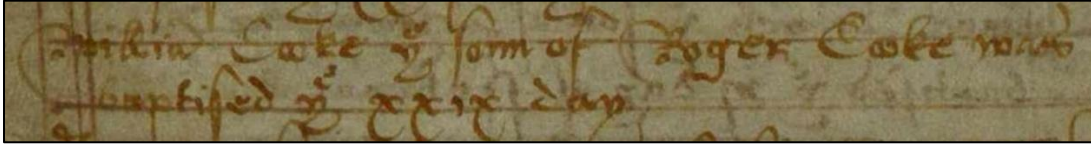 Willia͂ Cooke yͤ sonn of Roger Cooke was
baptised yͤ xxix day